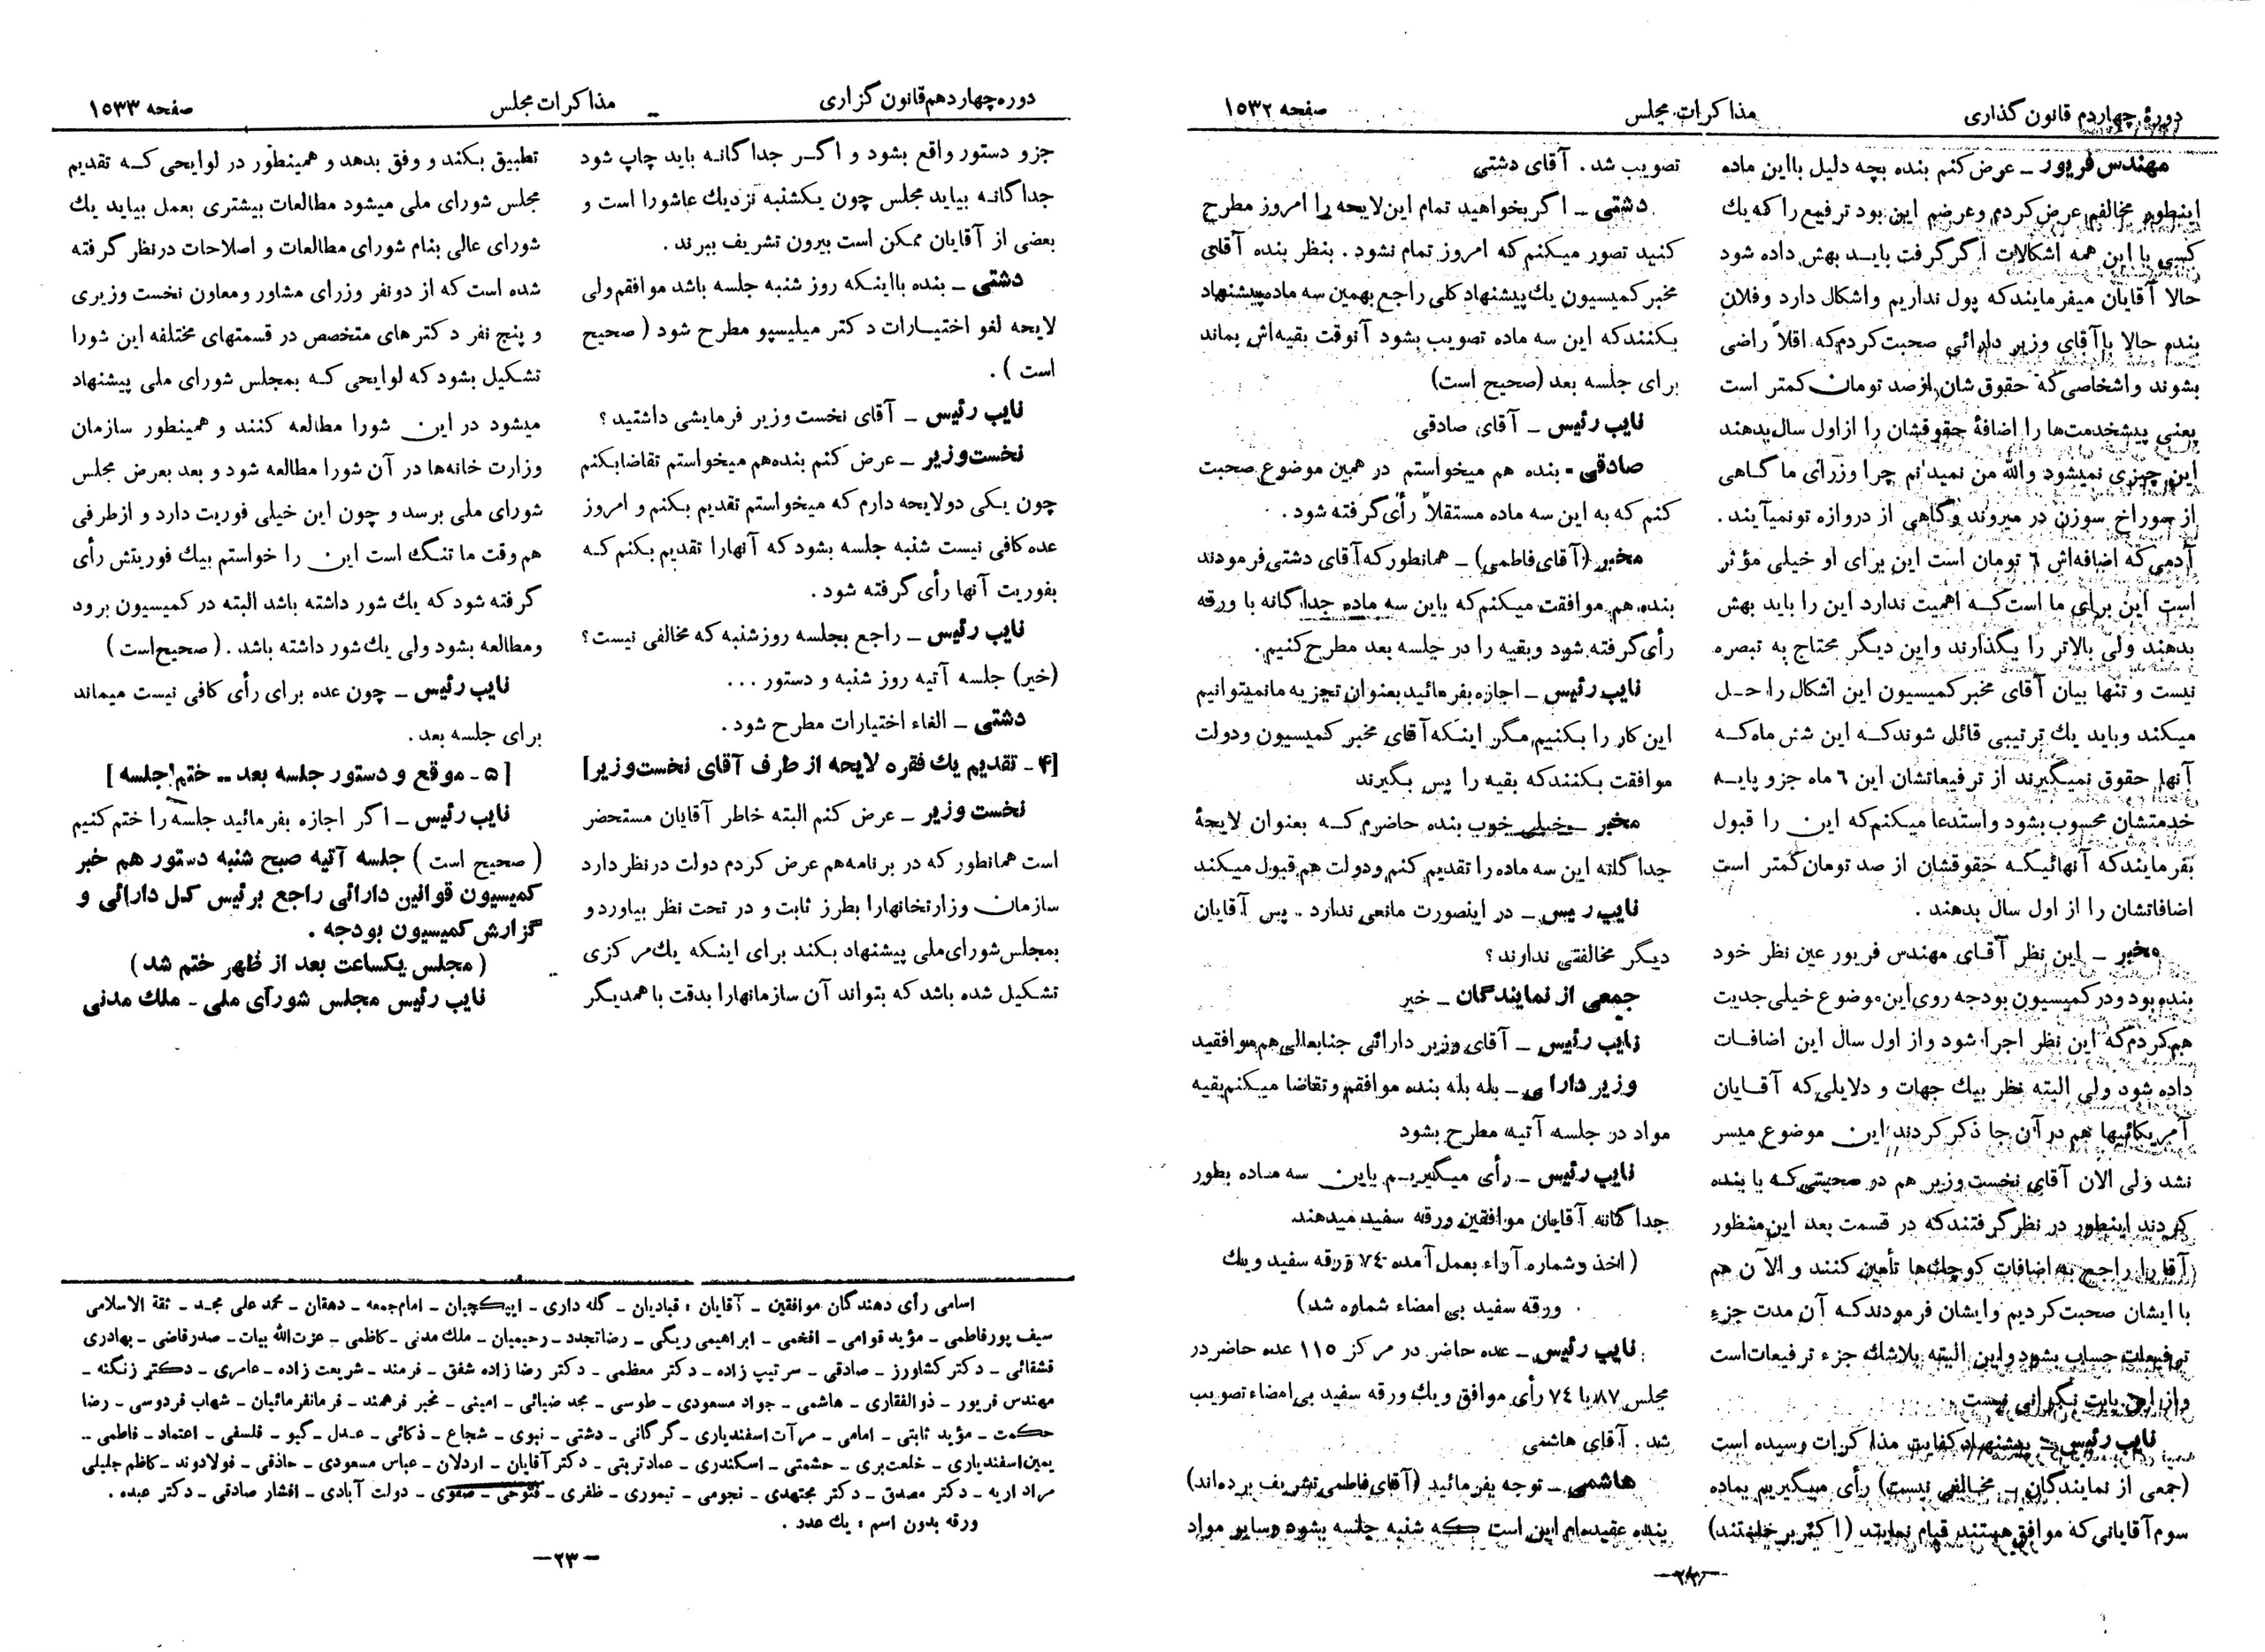 دورهٔ چهاردهم قانون گذاری
مذاکرات مجلس
صفحه ۱۵۳۲
مهندس فریور ـ عرض کنم بنده بچه دلیل بااین ماده
اینطور مخالفم عرض کردم وعرضم این بود ترفیع را که یك
کسی با این همه اشکالات اگر گرفت بایـد بهش داده شود
حالا آقایان میفرمایند که پول نداریم واشکال دارد وفلان
بنده حالا باآقای وزیر دارائی صحبت کردم که اقلاً راضی
بشوند واشخاصی که حقوق شان از صد تومان کمتر است
یعنی پیشخدمت‌ها را اضافهٔ حقوقشان را از اول سال بدهند
این چیزی نمیشود والله من نمیدانم چرا وزرای ما گـاهی
از سوراخ سوزن در میروند وگاهی از دروازه تونمیآیند .
آدمی که اضافه‌اش ٦ تومان است این برای او خیلی مؤثر
است این برای ما است کـه اهمیت ندارد این را باید بهش
بدهند ولی بالاتر را بگذارند واین دیگر محتاج به تبصره
نیست و تنها بیان آقای مخبر کمیسیون این اشکال را حـل
میکند وباید یك ترتیبی قائل شوند کـه این شش ماه کـه
آنها حقوق نمیگیرند از ترفیعاتشان این ٦ ماه جزو پایـه
خدمتشان محسوب بشود واستدعا میکنم که این را قبول
بفرمایند که آنهائیکـه حقوقشان از صد تومان کمتر است
اضافاتشان را از اول سال بدهند .
مخبر ـ این نظر آقـای مهندس فریور عین نظر خود
بنده بود ودر کمیسیون بودجه روی این موضوع خیلی جدیت
هم کردم که این نظر اجرا شود واز اول سال این اضافـات
داده شود ولی البته نظر بیك جهات و دلایلی که آقـایان
آمریکائیها هم در آن جا ذکر کردند این موضوع میسر
نشد ولی الان آقای نخست وزیر هم در صحبتی کـه با بنده
کردند اینطور در نظر گرفتند که در قسمت بعد این منظور
آقا را راجع به اضافات کوچك‌ها تأمین کنند و الآن هم
با ایشان صحبت کردیم وایشان فرمودند کـه آن مدت جزءِ
ترفیعات حساب بشود واین البته بلاشك جزء ترفیعات است
واز این بابت نگرانی نیست .
نایب رئیس ـ پیشنهاد کفایت مذاکرات رسیده است
(جمعی از نمایندگان ـ مخـالفی نیست) رأی میگیریم بماده
سوم آقایانی که موافق هستند قیام نمایند (اکثر برخاستند)
تصویب شد . آقای دشتی
دشتی ـ اگر بخواهید تمام این لایحه را امروز مطرح
کنید تصور میکنم که امروز تمام نشود . بنظر بنده آقای
مخبر کمیسیون یك پیشنهاد کلی راجع بهمین سه ماده پیشنهاد
بکنند که این سه ماده تصویب بشود آنوقت بقیه‌اش بماند
برای جلسه بعد (صحیح است)
نایب رئیس ـ آقای صادقی
صادقی ـ بنده هم میخواستم در همین موضوع صحبت
کنم که به این سه ماده مستقلاً رأی گرفته شود .
مخبر (آقای فاطمی) ـ همانطور که آقای دشتی فرمودند
بنده هم موافقت میکنم که باین سه ماده جداگانه با ورقه
رأی گرفته شود وبقیه را در جلسه بعد مطرح کنیم.
نایب رئیس ـ اجازه بفرمائید بعنوان تجزیه ما نمیتوانیم
این کار را بکنیم مگر اینکه آقای مخبر کمیسیون ودولت
موافقت بکنند که بقیه را پس بگیرند
مخبر ـ خیلی خوب بنده حاضرم کـه بعنوان لایحهٔ
جداگانه این سه ماده را تقدیم کنم ودولت هم قبول میکند
نایب رییس ـ در اینصورت مانعی ندارد . پس آقایان
دیگر مخالفتی ندارند ؟
جمعی از نمایندگان ـ خیر
نایب رئیس ـ آقای وزیر دارائی جنابعالی هم موافقید
وزیر دارای ـ بله بله بنده موافقم وتقاضا میکنم بقیه
مواد در جلسه آتیه مطرح بشود
نایب رئیس ـ رأی میگیریـم باین سه مـاده بطور
جداگانه آقایان موافقین ورقه سفید میدهند
(اخذ وشماره آراء بعمل آمده ۷٤ ورقه سفید ویك
ورقه سفید بی امضاء شماره شد)
نایب رئیس ـ عده حاضر در مرکز ۱۱٥ عده حاضر در
مجلس ۸۷ با ۷٤ رأی موافق ویك ورقه سفید بی امضاء تصویب
شد . آقای هاشمی
هاشمی ـ توجه بفرمائید (آقای فاطمی تشریف برده‌اند)
بنده عقیده‌ام این است که شنبه جلسه بشود وسایر مواد
دوره چهاردهم قانون گزاری
مذاکرات مجلس
صفحه ۱۵۳۳
جزو دستور واقع بشود و اگـر جداگانـه باید چاپ شود
جداگانـه بیاید مجلس چون یکشنبه نزدیك عاشورا است و
بعضی از آقایان ممکن است بیرون تشریف ببرند .
دشتی ـ بنده بااینکه روز شنبه جلسه باشد موافقم ولی
لایحه لغو اختیـارات دکتر میلیسپو مطرح شود ( صحیح
است ) .
نایب رئیس ـ آقای نخست وزیر فرمایشی داشتید ؟
نخست‌وزیر ـ عرض کنم بنده‌هم میخواستم تقاضابکنم
چون یکی دولایحه دارم که میخواستم تقدیم بکنم و امروز
عده کافی نیست شنبه جلسه بشود که آنهارا تقدیم بکنم کـه
بفوریت آنها رأی گرفته شود .
نایب رئیس ـ راجع بجلسه روزشنبه که مخالفی نیست ؟
(خیر) جلسه آتیه روز شنبه و دستور ...
دشتی ـ الغاء اختیارات مطرح شود .
[۴ ـ تقدیم یك فقره لایحه از طرف آقای نخست‌وزیر]
نخست وزیر ـ عرض کنم البته خاطر آقایان مستحضر
است همانطور که در برنامه‌هم عرض کردم دولت درنظر دارد
سازمان وزارتخانهارا بطرز ثابت و در تحت نظر بیاورد و
بمجلس شورای‌ملی پیشنهاد بکند برای اینکه یك مرکزی
تشکیل شده باشد که بتواند آن سازمانهارا بدقت با همدیگر
تطبیق بکند و وفق بدهد و همینطور در لوایحی کـه تقدیم
مجلس شورای ملی میشود مطالعات بیشتری بعمل بیاید یك
شورای عالی بنام شورای مطالعات و اصلاحات درنظر گرفته
شده است که از دونفر وزرای مشاور ومعاون نخست وزیری
و پنج نفر دکترهای متخصص در قسمتهای مختلفه این شورا
تشکیل بشود که لوایحی کـه بمجلس شورای ملی پیشنهاد
میشود در این شورا مطالعه کنند و همینطور سازمان
وزارت خانه‌ها در آن شورا مطالعه شود و بعد بعرض مجلس
شورای ملی برسد و چون این خیلی فوریت دارد و ازطرفی
هم وقت ما تنگ است این را خواستم بیك فوریتش رأی
گرفته شود که یك شور داشته باشد البته در کمیسیون برود
ومطالعه بشود ولی یك شور داشته باشد . ( صحیح است )
نایب رئیس ـ چون عده برای رأی کافی نیست میماند
برای جلسه بعد .
[ ۵ ـ موقع و دستور جلسه بعد ـ ختم جلسه ]
نایب رئیس ـ اگر اجازه بفرمائید جلسه را ختم کنیم
( صحیح است ) جلسه آتیه صبح شنبه دستور هم خبر
کمیسیون قوانین دارائی راجع برئیس کـل دارائی و
گزارش کمیسیون بودجه .
( مجلس یکساعت بعد از ظهر ختم شد )
نایب رئیس مجلس شورای ملی ـ ملك مدنی
اسامی رأی دهندگان موافقین ـ آقایان : قبادیان ـ گله داری ـ ایپکچیان ـ امام‌جمعه ـ دهقان ـ محمد علی مجـد ـ ثقة الاسلامی
سیف پورفاطمی ـ مؤید قوامی ـ افخمی ـ ابراهیمی ریگی ـ رضاتجدد ـ رحیمیان ـ ملك مدنی ـ کاظمی ـ عزت‌الله بیات ـ صدرقاضی ـ بهادری
قشقائی ـ دکتر کشاورز ـ صادقی ـ سرتیپ زاده ـ دکتر معظمی ـ دکتر رضا زاده شفق ـ فرمند ـ شریعت زاده ـ عامری ـ دکتر زنگنه ـ
مهندس فریور ـ ذوالفقاری ـ هاشمی ـ جواد مسعودی ـ طوسی ـ مجد ضیائی ـ امینی ـ مخبر فرهمند ـ فرمانفرمائیان ـ شهاب فردوسی ـ رضا
حکمت ـ مؤید ثابتی ـ امامی ـ مرآت اسفندیاری ـ گرگانی ـ دشتی ـ نبوی ـ شجاع ـ ذکائی ـ عـدل ـ گیو ـ فلسفی ـ اعتماد ـ فاطمی ـ
یمین اسفندیاری ـ خلعت‌بری ـ حشمتی ـ اسکندری ـ عمادتربتی ـ دکتر آقایان ـ اردلان ـ عباس مسعودی ـ حاذقی ـ فولادوند ـ کاظم جلیلی
مراد اریه ـ دکتر مصدق ـ دکتر مجتهدی ـ نجومی ـ تیموری ـ ظفری ـ فتوحی ـ صفوی ـ دولت آبادی ـ افشار صادقی ـ دکتر عبده .
ورقه بدون اسم : یك عدد .
ـ۲۳ـ